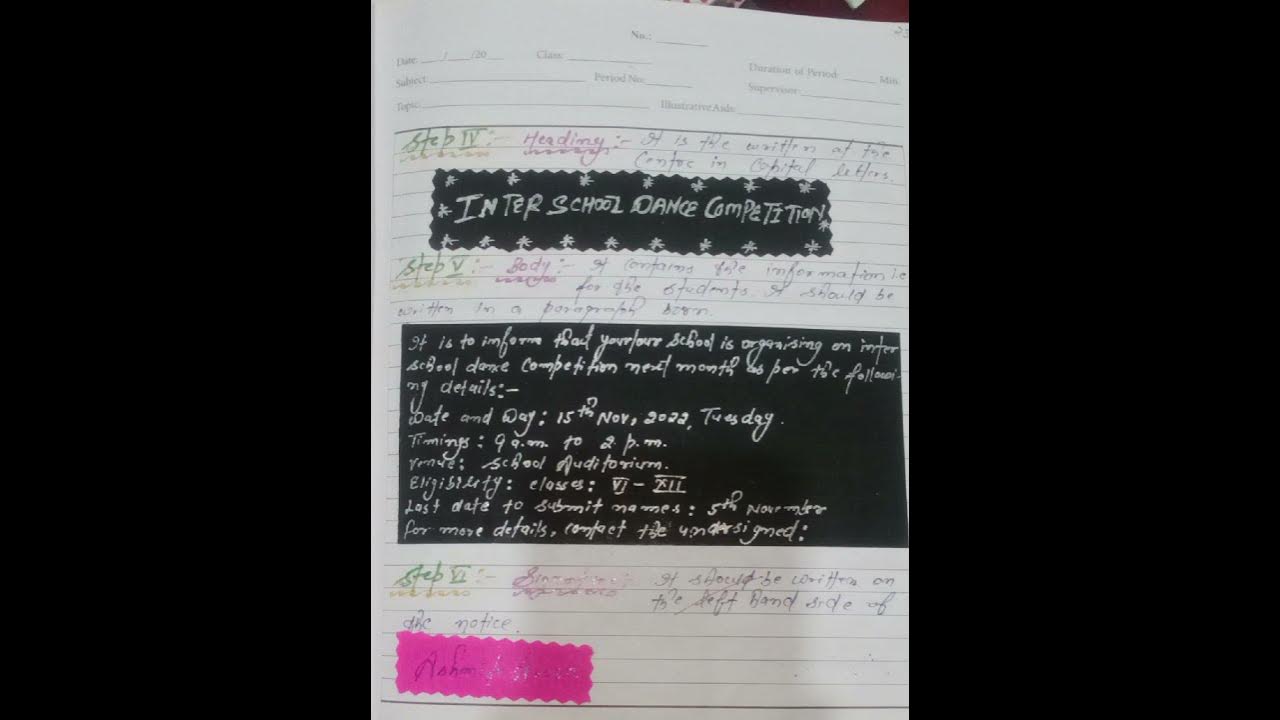 23
No.: ______
Date: ___/___/20___ Class: ________
Duration of Period: _____ Min.
Subject: ________ Period No: ______
Supervisor: ________
Topic: ________ Illustrative Aids: ________
Step IV :- Heading :- It is the written at the
Centre in Capital letters.
INTER SCHOOL DANCE COMPETITION
Step V :- Body :- It contains the information i.e
for the students. It should be
written in a paragraph
It is to inform that your/our school is organising an inter
school dance Competition next month as per the followi-
ng details:-
Date and Day: 15th Nov, 2022, Tuesday.
Timings: 9 a.m. to 2 p.m.
Venue: School Auditorium.
Eligibility: classes: VI - XII
Last date to submit names: 5th November
for more details, contact the undersigned:
Step VI :- It should be written on
the left hand side of
the notice.